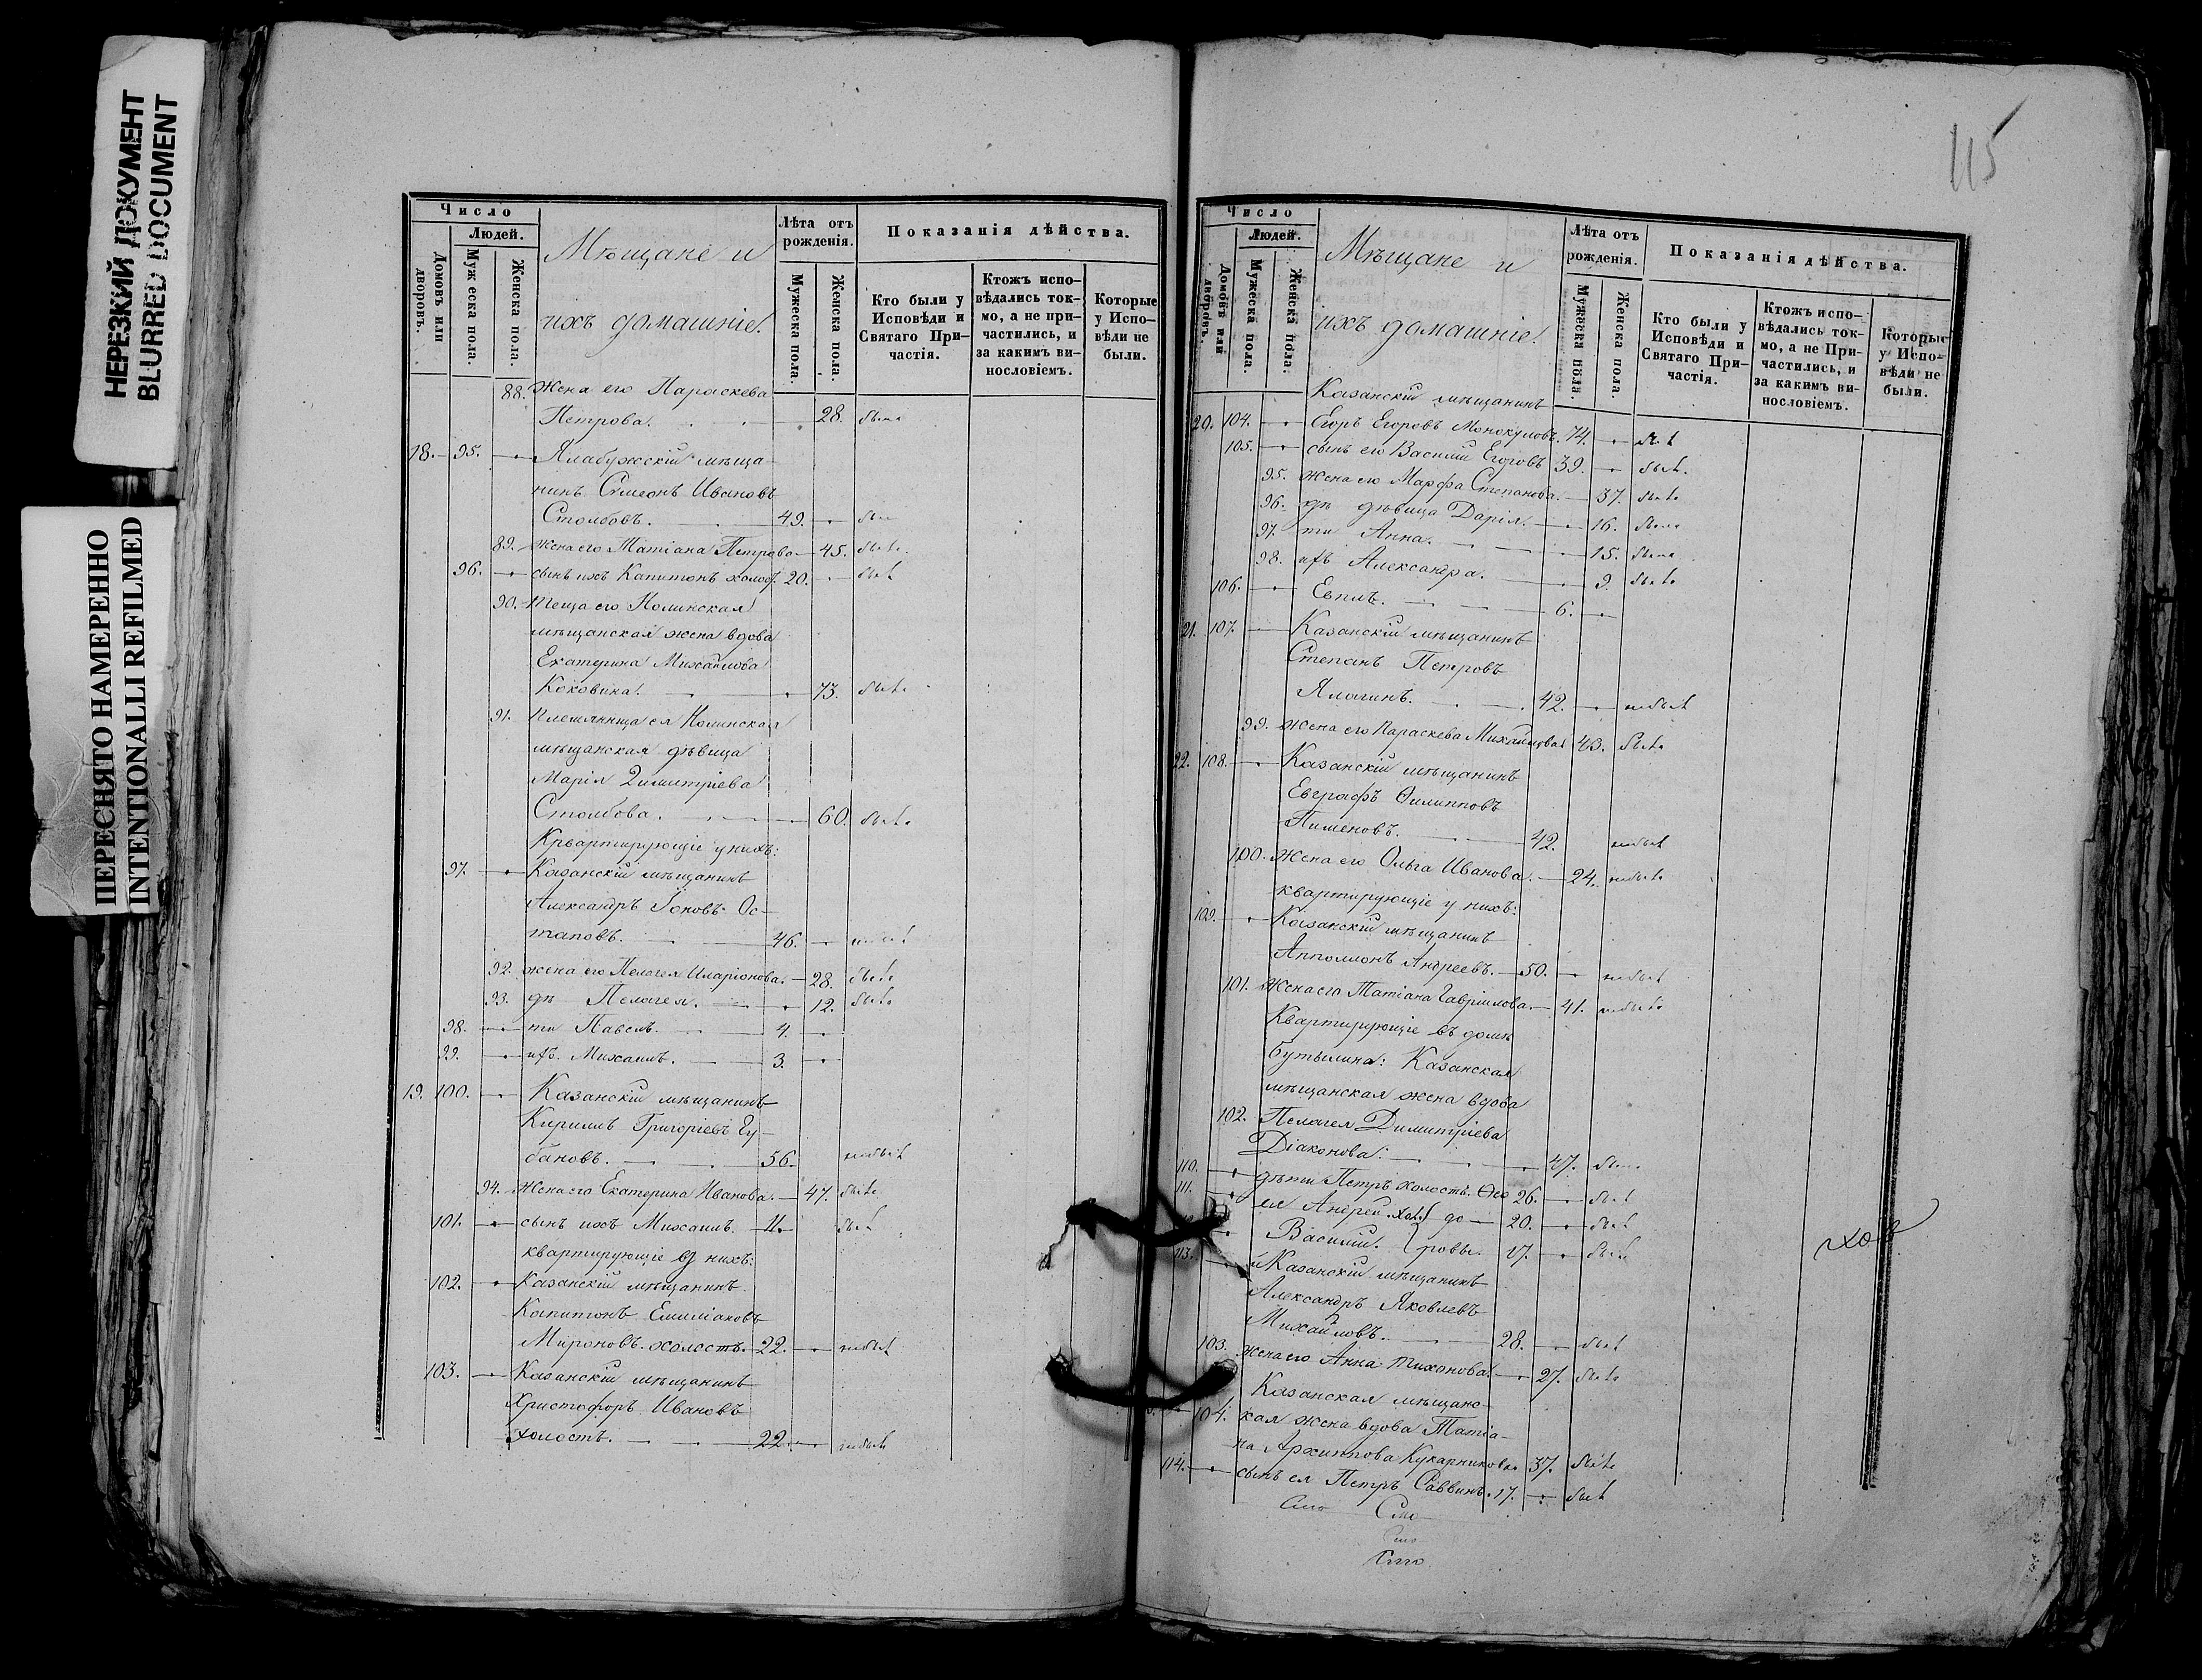 НЕРЕЗКИЙ ДОКУМЕНТ
BLURRED DOCUMENT
ПЕРЕСНЯТО НАМЕРЕННО
INTENTIONALLI REFILMED
Число
Людей.
Домовъ или дворовъ.
Мужеска пола.
Женска пола.
Мѣщане и
ихъ домашніе.
Лѣта отъ рожденія.
Мужеска пола.
Женска пола.
Показанія дѣйства.
Кто были у Исповѣди и Святаго Причастія.
Ктожъ исповѣдались токмо, а не причастились, и за какимъ винословіемъ.
Которые у Исповѣди не были.
88. Жена его Параскева
Петрова. 28. была
18. 95. Ялабужскій мѣща-
нинъ Симеонъ Ивановъ
Столбовъ. 49. был
89. Жена его Татіана Петрова 45. была
96. сынъ ихъ Капитонъ холос. 20. былъ
90. Теща его Нолинская
мѣщанская жена вдова
Екатерина Михайлова
Коковина. 73. была
91. Племянница ея Нолинская
мѣщанская дѣвица
Марія Димитріева
Столбова. 60. была
Крвартирующіе у нихъ:
97. Казанскій мѣщанинъ
Александръ Іоновъ Ос-
таповъ. 46. небылъ
92. жена его Пелагея Иларіонова. 28. была
93. дѣ Пелагея. 12. была
98. ти Павелъ. 4.
99. ихъ Михаилъ. 3.
19. 100. Казанскій мѣщанинъ
Кирилъ Григоріевъ Гу-
бановъ. 56. небылъ
94. Жена его Екатерина Иванова. 47. была
101. сынъ ихъ Михаилъ. 11. былъ
квартирующіе у нихъ:
102. Казанскій мѣщанинъ
Капитонъ Емиліановъ
Мироновъ. холостъ. 22. небылъ
103. Казанскій мѣщанинъ
Христофоръ Ивановъ
холостъ. 22. небылъ
115
Число
Людей.
Домовъ или дворовъ.
Мужеска пола.
Женска пола.
Мѣщане и
ихъ домашніе.
Лѣта отъ рожденія.
Мужеска пола.
Женска пола.
Показанія дѣйства.
Кто были у Исповѣди и Святаго Причастія.
Ктожъ исповѣдались токмо, а не Причастились, и за какимъ винословіемъ.
Которые у Исповѣди не были.
Казанскій мѣщанинъ
20. 104. Егоръ Егоровъ Монокуловъ. 74. былъ
105. сынъ его Василій Егоровъ 39. былъ.
95. Жена его Марфа Степанова. 37. была
96. дѣ дѣвица Дарія. 16. была
97. ти Анна. 15. была
98. ихъ Александра. 9. была
106. Евплъ. 6.
21. 107. Казанскій мѣщанинъ
Степанъ Петровъ
Ялагинъ. 42. небылъ
99. Жена его Параскева Михайлова 43. была
22. 108. Казанскій мѣщанинъ
Евграфъ Филипповъ
Пименовъ. 42. небылъ
100. Жена его Ольга Иванова. 24. небыла
квартирующіе у нихъ:
109. Казанскій мѣщанинъ
Апполлонъ Андреевъ. 50. небылъ
101. Жена его Татіана Гавріилова. 41. небыла
Квартирующіе въ домѣ
Бутылина: Казанская
мѣщанская жена вдова
102. Пелагея Димитріева
Діаконова: 47. была
110. дѣти Петръ холостъ. Ѳео 26. былъ
111. ея Андрей. хол. до 20. былъ
Василій. ровы. 17. былъ
113. Казанскій мѣщанинъ
Александръ Яковлевъ
Михайловъ. 28. былъ
103. Жена его Анна Тиханова. 27. была
Казанская мѣщанс-
104. кая жена вдова Татіа-
на Архиппова Кукарникова 37. была
114. сынъ ея Петръ Саввинъ. 17. былъ